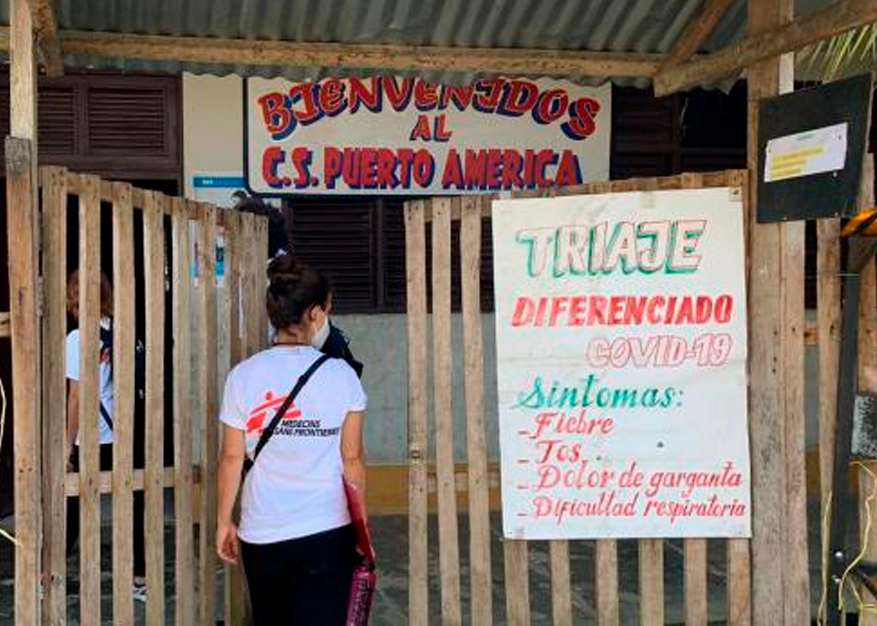 BIENVENIDOS
AL
C.S. PUERTO AMERICA
TRIAJE
DIFERENCIADO
COVID-19
Sintomas:
- Fiebre
- Tos.
- Dolor de garganta
- Dificultad respiratoria
MEDECINS
SANS FRONTIERES